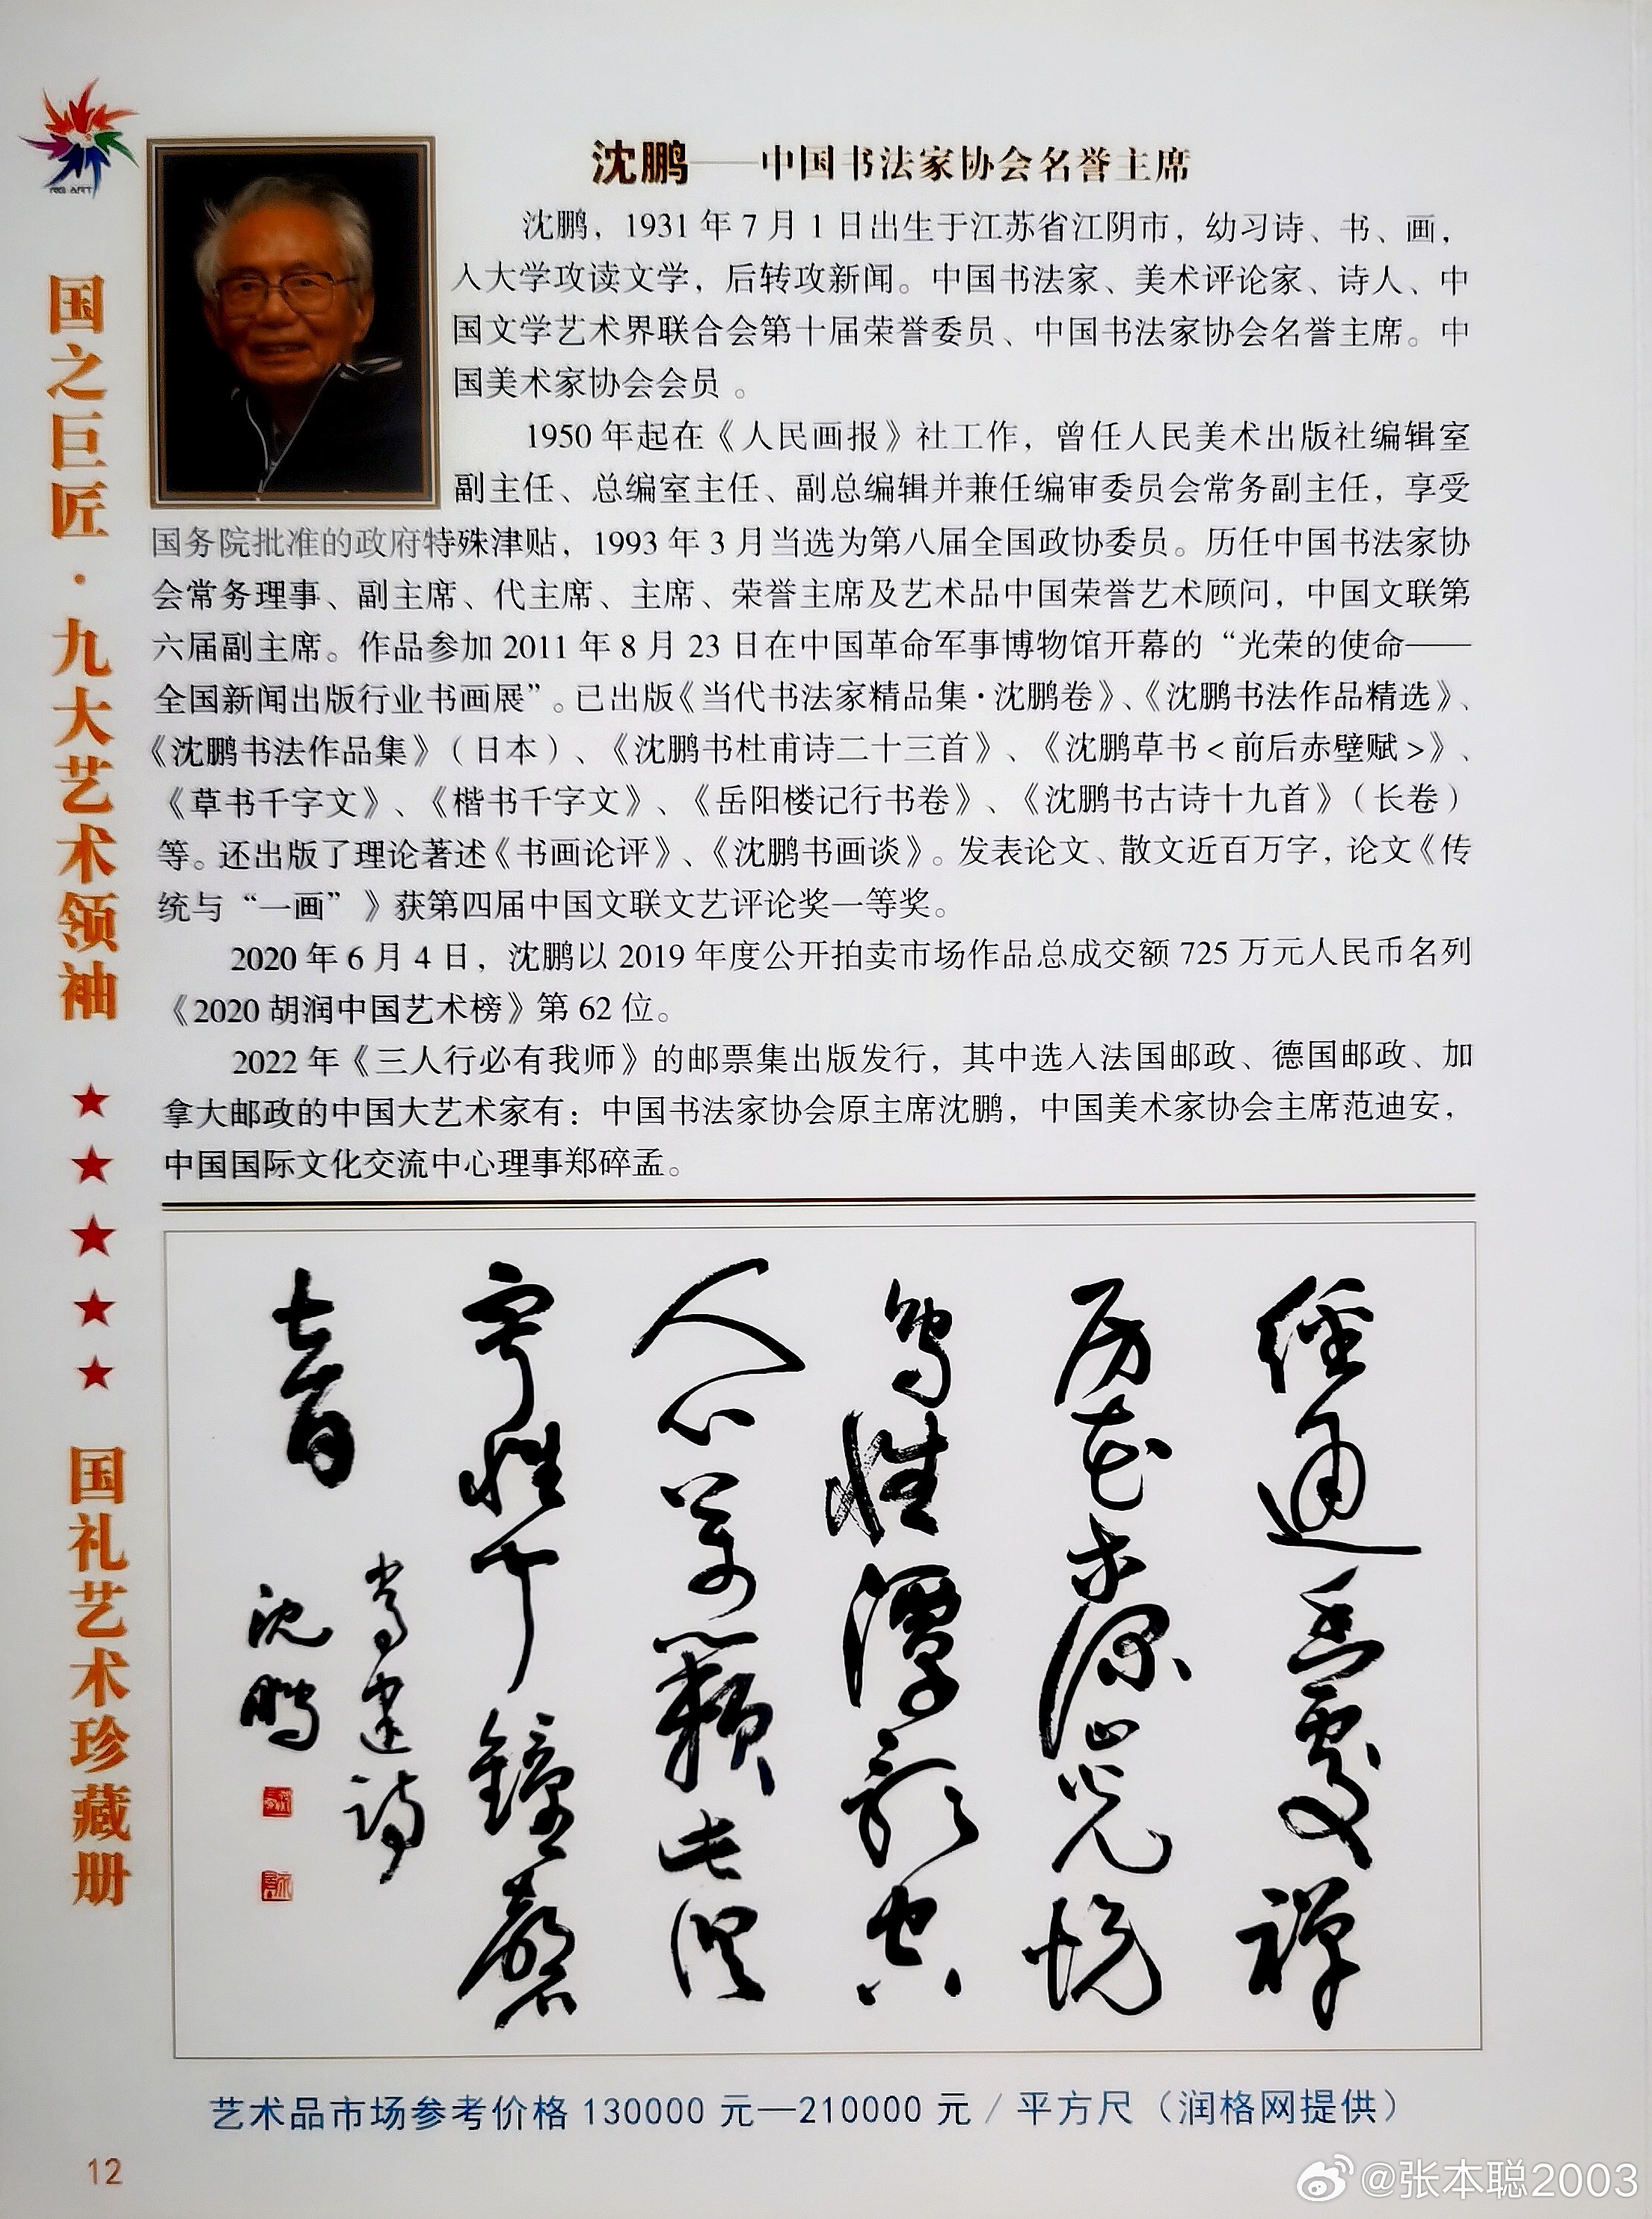 RG ART
国之巨匠·九大艺术领袖
★★★★★
国礼艺术珍藏册
沈鹏——中国书法家协会名誉主席
沈鹏，1931年7月1日出生于江苏省江阴市，幼习诗、书、画，
人大学攻读文学，后转攻新闻。中国书法家、美术评论家、诗人、中
国文学艺术界联合会第十届荣誉委员、中国书法家协会名誉主席。中
国美术家协会会员。
1950年起在《人民画报》社工作，曾任人民美术出版社编辑室
副主任、总编室主任、副总编辑并兼任编审委员会常务副主任，享受
国务院批准的政府特殊津贴，1993年3月当选为第八届全国政协委员。历任中国书法家协
会常务理事、副主席、代主席、主席、荣誉主席及艺术品中国荣誉艺术顾问，中国文联第
六届副主席。作品参加2011年8月23日在中国革命军事博物馆开幕的“光荣的使命——
全国新闻出版行业书画展”。已出版《当代书法家精品集·沈鹏卷》、《沈鹏书法作品精选》、
《沈鹏书法作品集》（日本）、《沈鹏书杜甫诗二十三首》、《沈鹏草书<前后赤壁赋>》、
《草书千字文》、《楷书千字文》、《岳阳楼记行书卷》、《沈鹏书古诗十九首》（长卷）
等。还出版了理论著述《书画论评》、《沈鹏书画谈》。发表论文、散文近百万字，论文《传
统与“一画”》获第四届中国文联文艺评论奖一等奖。
2020年6月4日，沈鹏以2019年度公开拍卖市场作品总成交额725万元人民币名列
《2020胡润中国艺术榜》第62位。
2022年《三人行必有我师》的邮票集出版发行，其中选入法国邮政、德国邮政、加
拿大邮政的中国大艺术家有：中国书法家协会原主席沈鹏，中国美术家协会主席范迪安，
中国国际文化交流中心理事郑碎孟。
徑通幽處禅
房花木深山光悦
鸟性潭影空
人心万籁此俱
寂惟闻鐘磬
音
常建诗
沈鹏
艺术品市场参考价格130000元—210000元/平方尺（润格网提供）
12
@张本聪2003